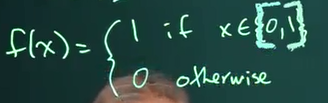 f(x) = { 1 if x ∈ [0,1]
0 otherwise